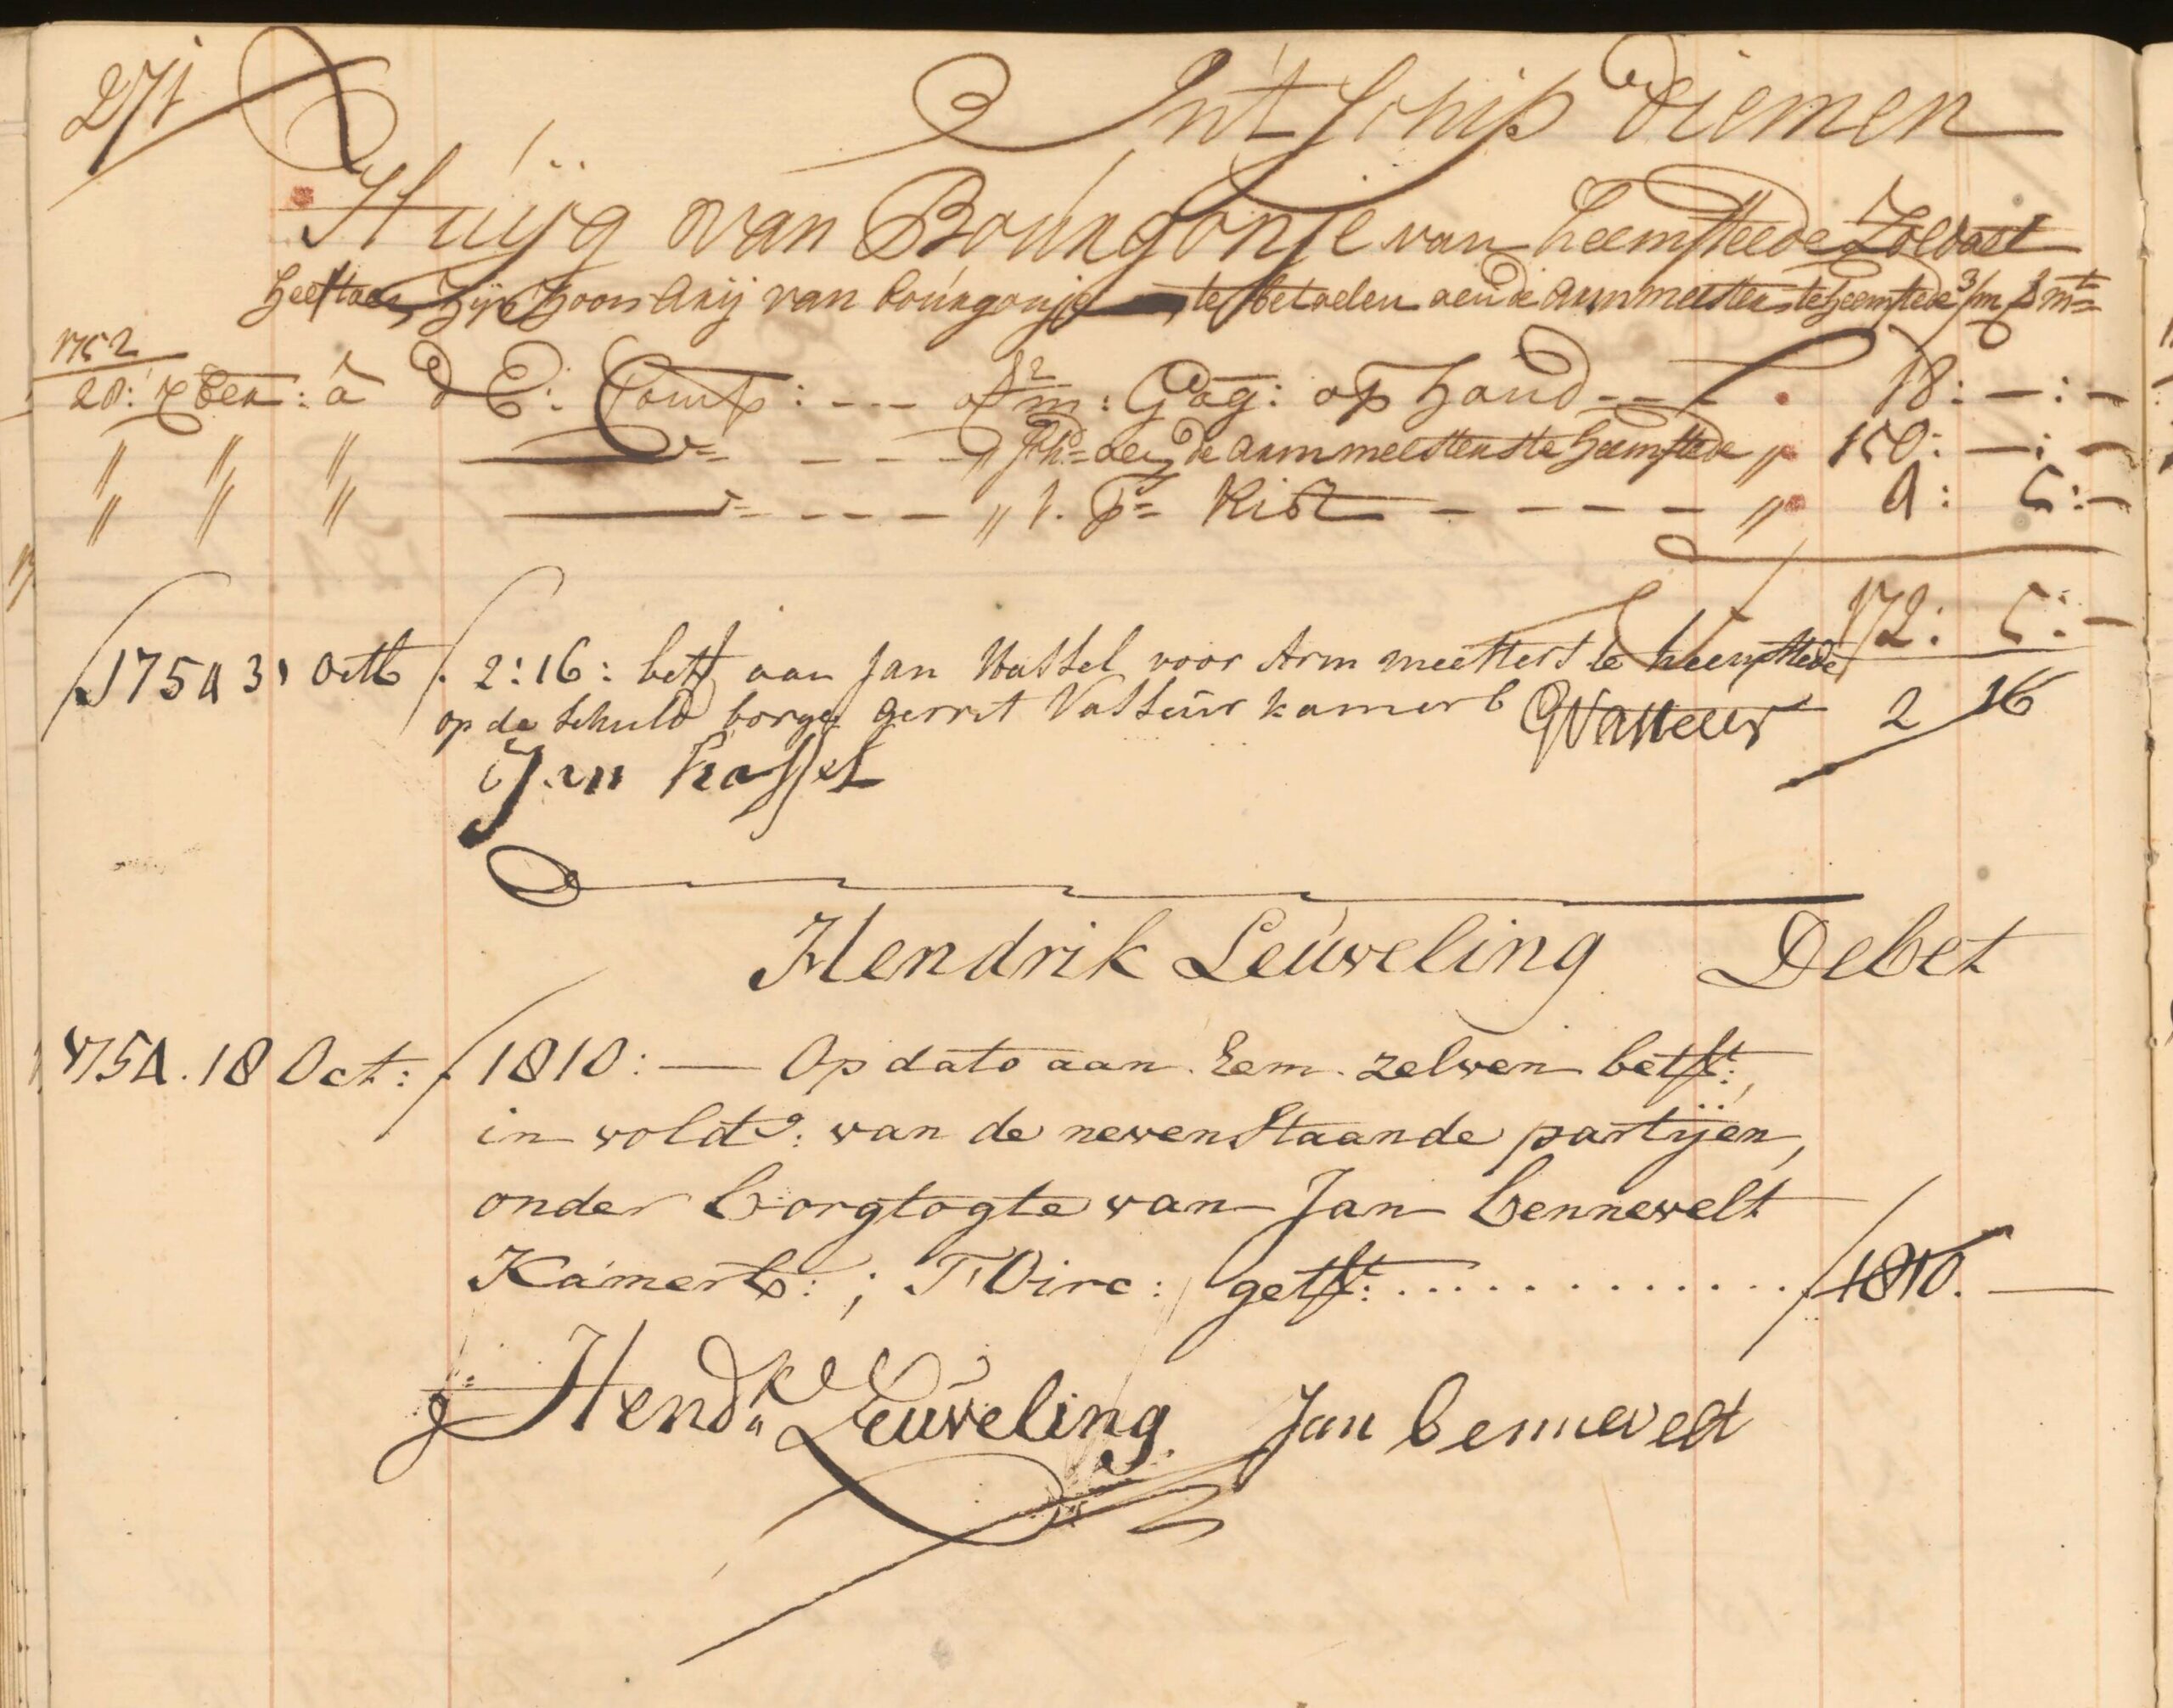 271
Int Schip Diemen
Huijg van Bourgonje van Heemsteede Zoldaat
heeft aan Zijn Zoon Arij van bourgonje te betaelen aen de armmeesters te heemstede 3/m
1752
20: Xber: â d E: Comp: --- 2/m: Gag: op hand --- ƒ 18: —:—
" " " --- " aen de armmeesters te heemstede " 150: —:—
" " " --- " 1. Ps= Kist ---- " 4: 5:—
172: 5:—
1754 31 Octb ƒ 2:16: bett aan Jan Hassel voor Arm meesters te heemstede
op de schuld borge gerrit Vasseur kamerb GVasseur 2 16
Jan hassel
Hendrik Leúweling Debet
1754. 18 Oct: ƒ 1810: — Op dato aan. Eem. zelven betft:,
in voldo: van de nevenstaande partijen,
onder borgtogte van Jan bennevelt
Kamerb:; F: Dirc: getft: ............. ƒ 1810. —
Hendk Leuweling. Jan bennevelt